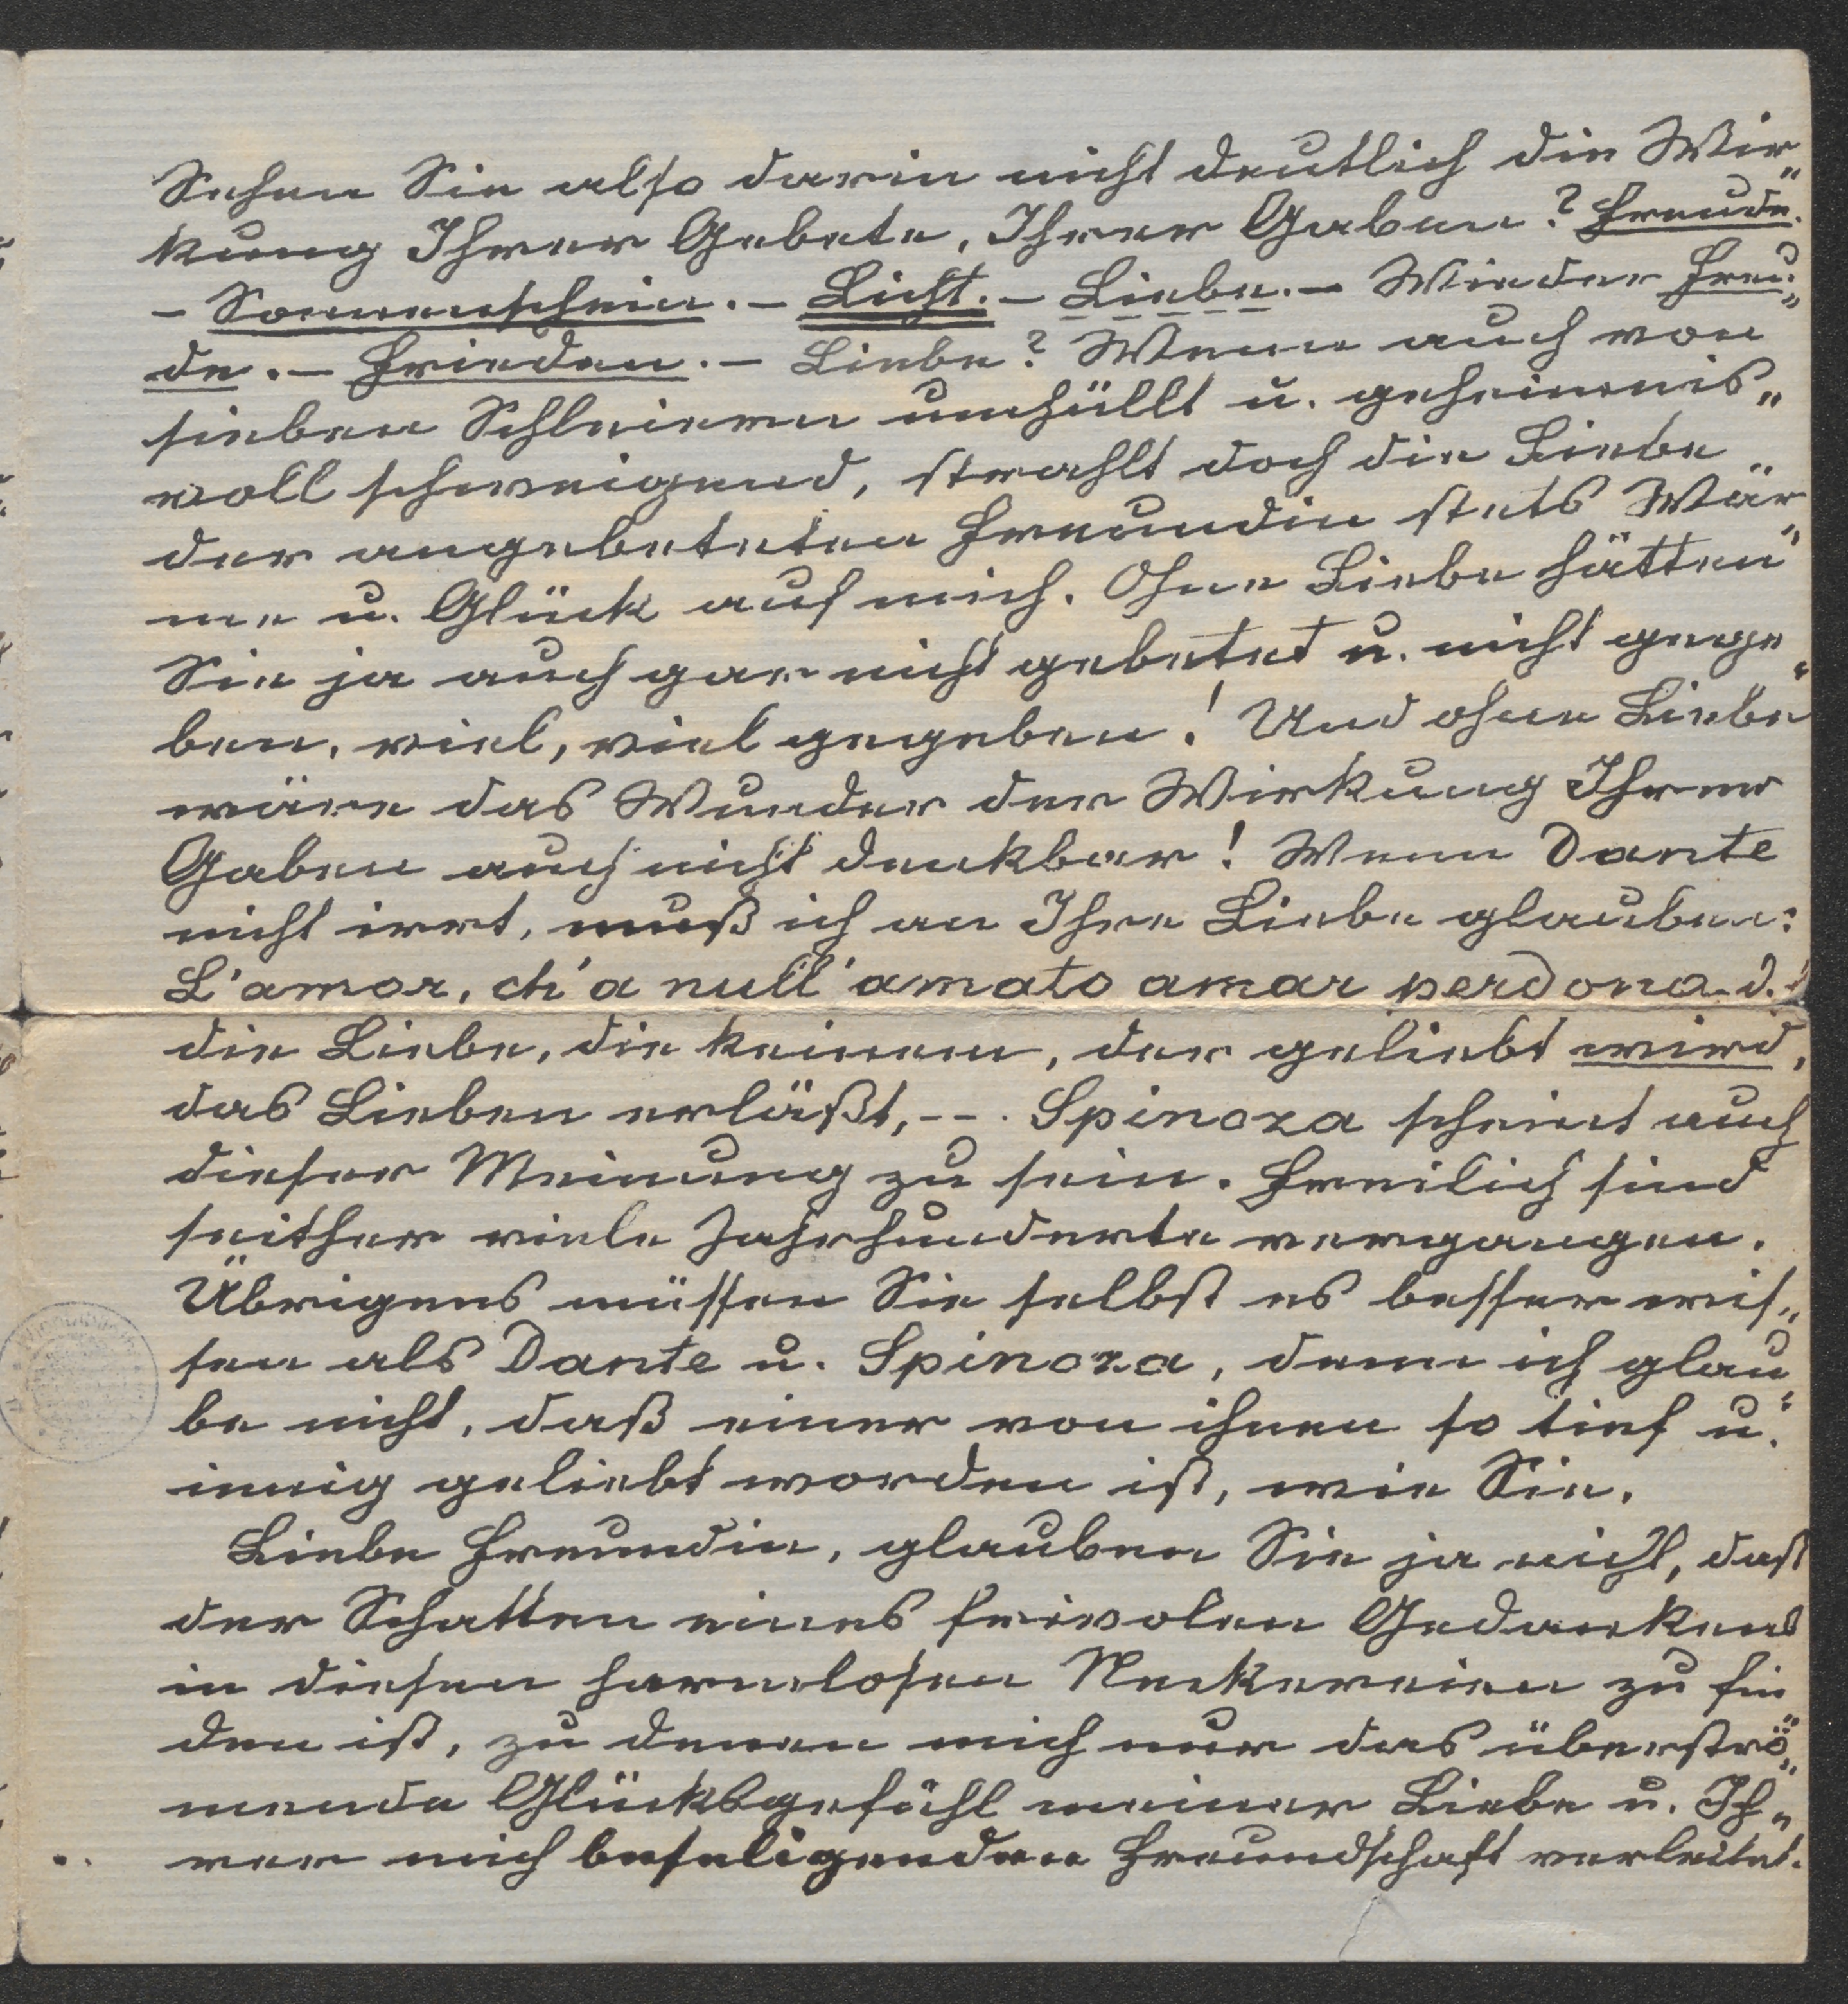 Sehen Sie also darin nicht deutlich die Wir„
kung Ihrer Gebete, Ihrer Gaben? Freude.
– Sonnenschein. – Licht. – Liebe. – Wieder Freu„
de. – Frieden. – Liebe? Wenn auch von
sieben Schleiern umhüllt u. geheimnis„
voll schweigend, strahlt doch die Liebe
der angebeteten Freundin stets Wär„
me u. Glück auf mich. Ohne Liebe hätten
Sie ja auch gar nicht gebetet u. nicht gege„
ben, viel, viel gegeben! Und ohne Liebe
wäre das Wunder der Wirkung Ihrer
Gaben auch nicht denkbar! Wenn Dante
nicht irrt, muß ich an Ihre Liebe glauben:
L'amor, ch'a null' amato amar perdona. d.
die Liebe, die keinem, der geliebt wird,
das Lieben erläßt, –-. Spinoza scheint auch
dieser Meinung zu sein. Freilich sind
seither viele Jahrhunderte vergangen.
Übrigens müssen Sie selbst es besser wis„
sen als Dante u. Spinoza, denn ich glau„
be nicht, daß einer von ihnen so tief u.
innig geliebt worden ist, wie Sie.
Liebe Freundin, glauben Sie ja nicht, daß
der Schatten eines frivolen Gedankens
in diesen harmlosen Neckereien zu fin„
den ist, zu denen mich nur das überströ„
mende Glücksgefühl meiner Liebe u. Ih„
rer mich beseligenden Freundschaft verleitet.